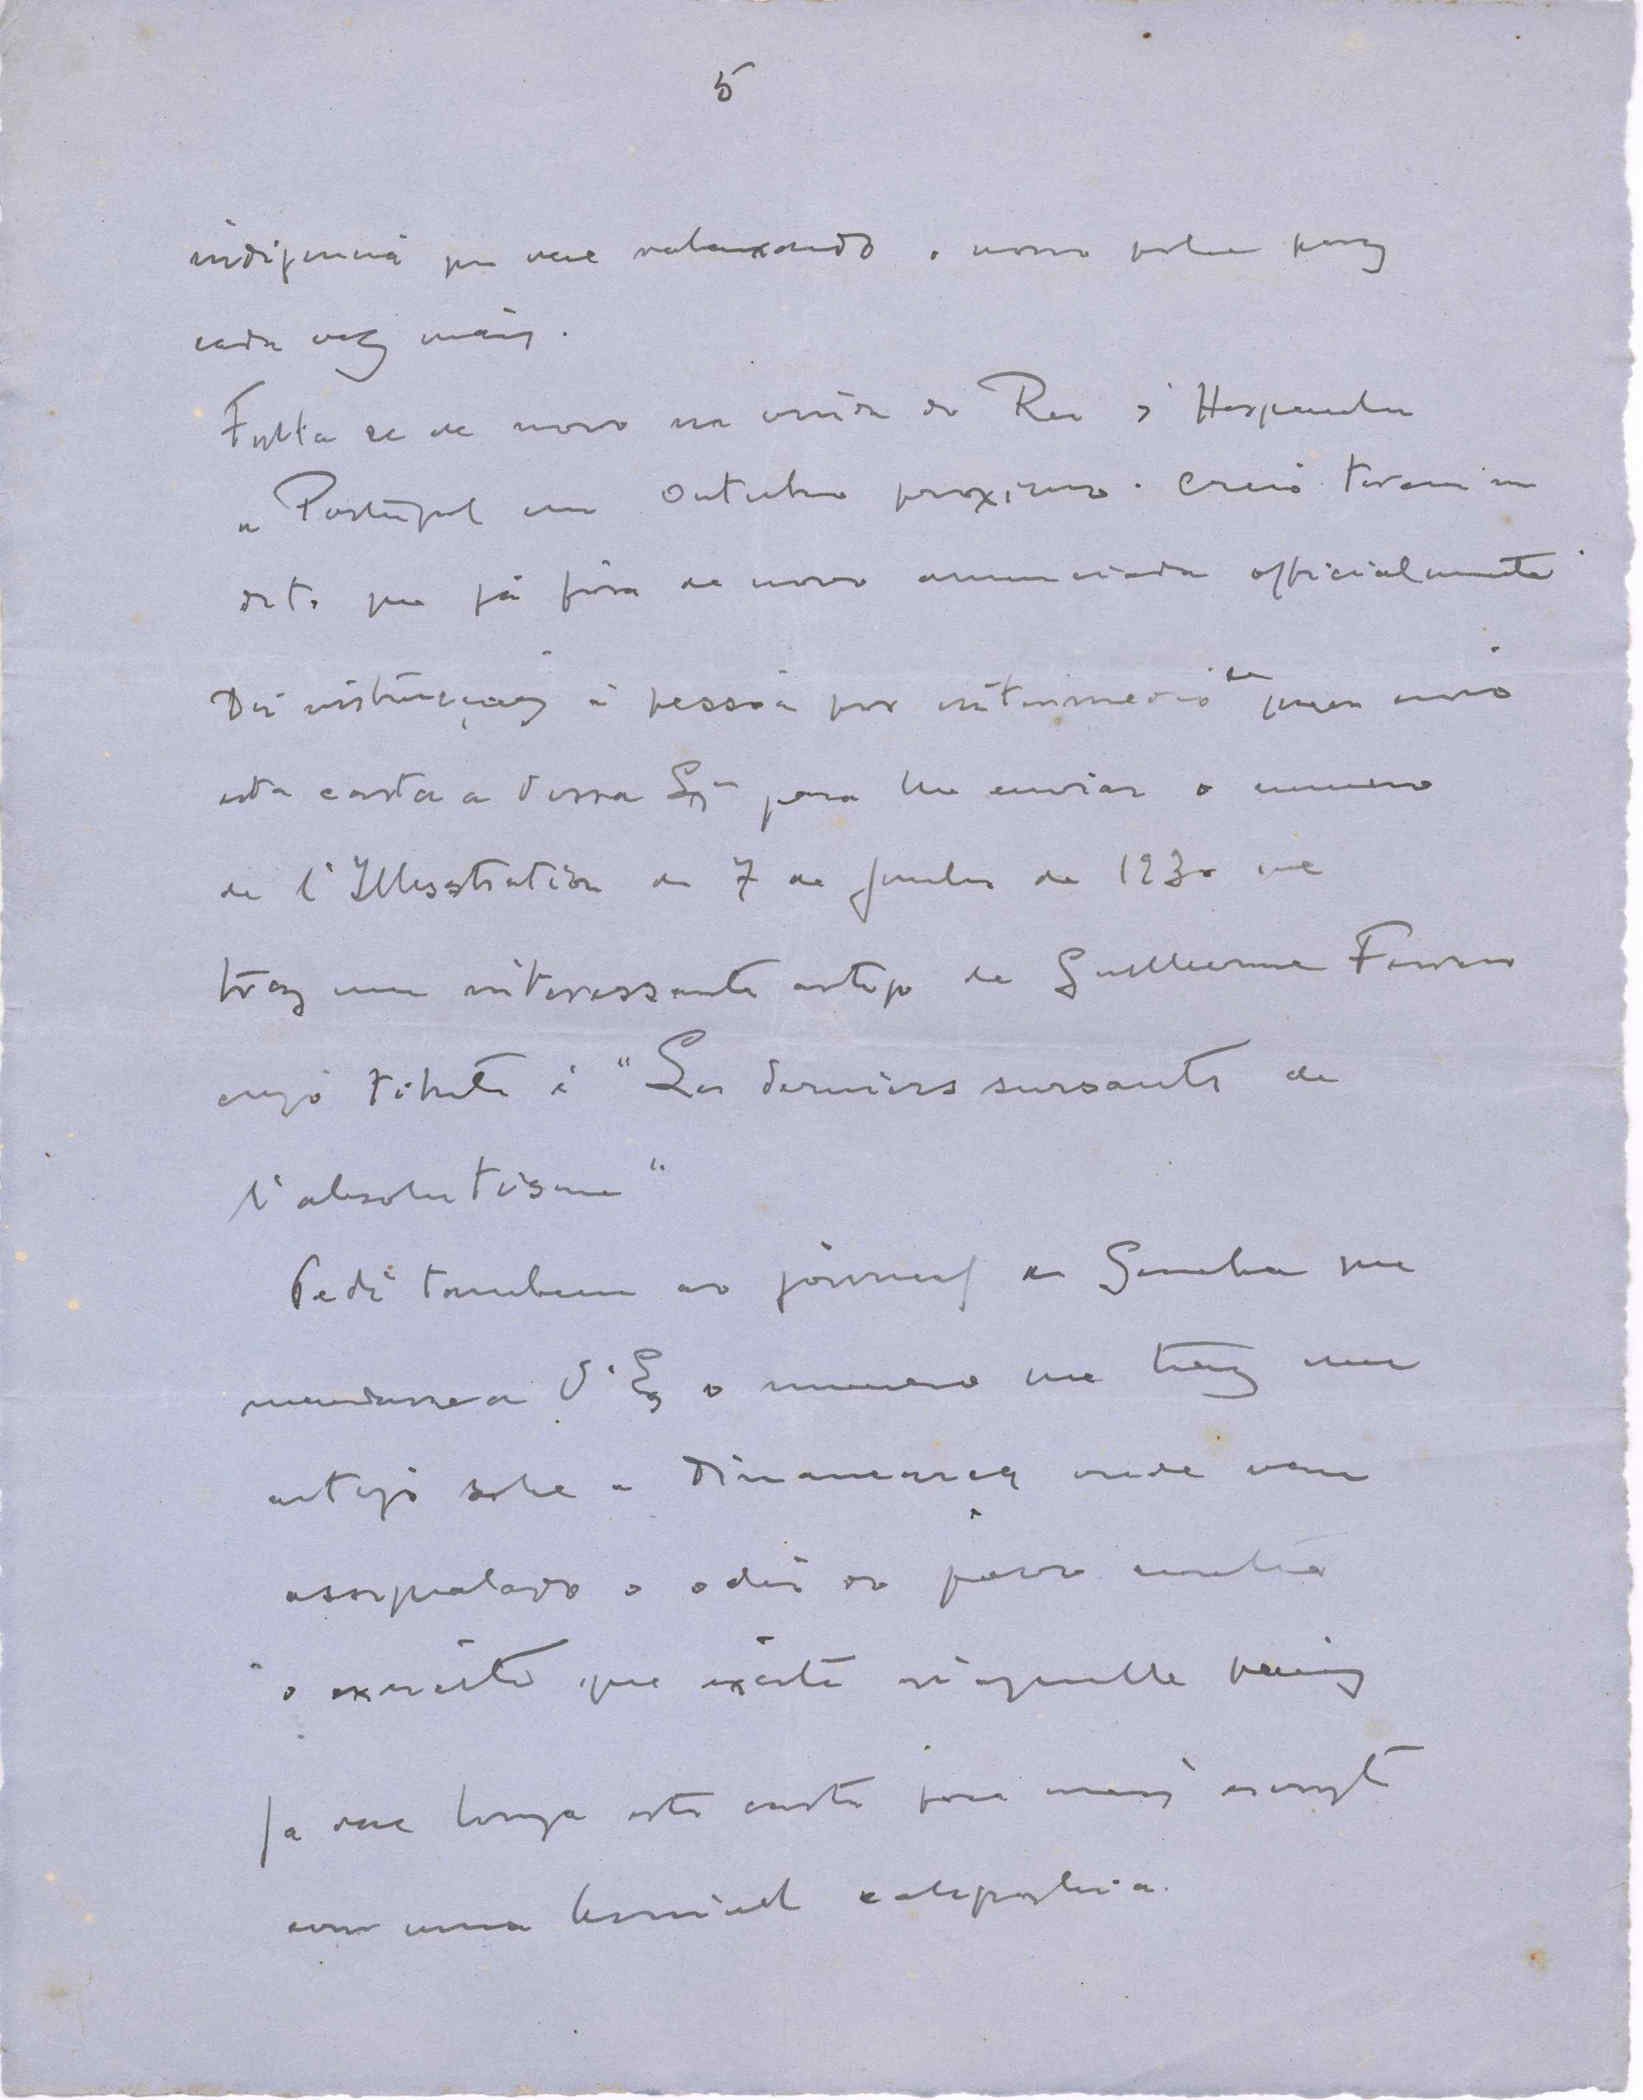 5
indigencia que vae rebaixando o nosso pobre paiz
cada vez mais.
Falla se de novo na vinda do Rei d'Hespanha
a Portugal em Outubro proximo. Creio terem me
dito que já fôra de novo annunciada officialmente.
Dei instrucções á pessoa por intermedio de quem envio
esta carta a Vossa Exª para lhe enviar o numero
de l'Illustration de 7 de Junho de 1930 que
traz um interessante artigo de Guilherme Ferrero
cujo titulo é "Les derniers sursauts de
l'absolutisme"
Pedi tambem ao jornal de Genebra que
mandasse a V. Ex o numero que traz um
artigo sobre a Dinamarca onde vem
assignalado o odio do povo contra
o exercito que existe n'aquelle paiz
Já vae longa esta carta para mais escripta
com uma horrivel caligraphia.